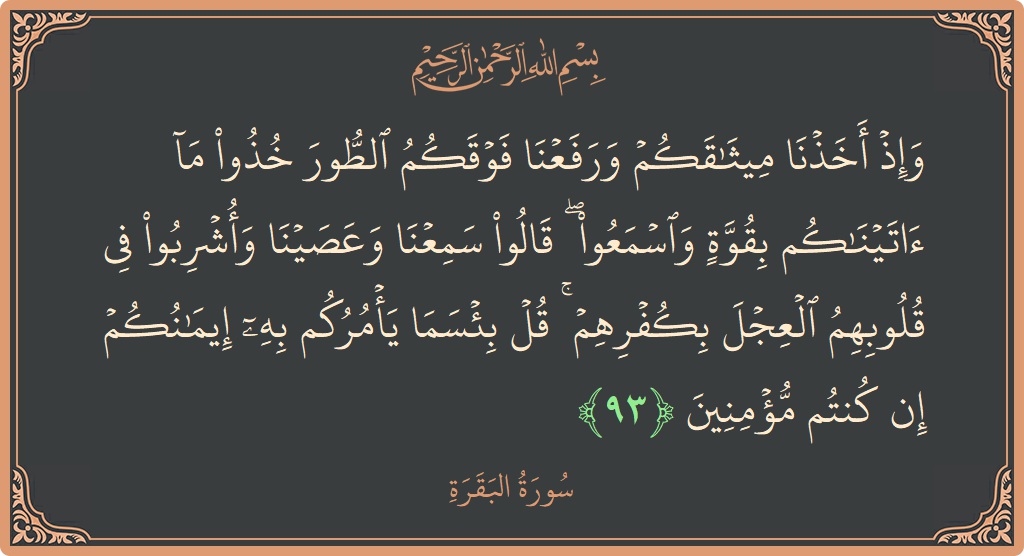 بِسْمِ اللهِ الرَّحْمٰنِ الرَّحِيْمِ
وَإِذۡ أَخَذۡنَا مِيثَٰقَكُمۡ وَرَفَعۡنَا فَوۡقَكُمُ ٱلطُّورَ خُذُواْ مَآ
ءَاتَيۡنَٰكُم بِقُوَّةٖ وَٱسۡمَعُواْۖ قَالُواْ سَمِعۡنَا وَعَصَيۡنَا وَأُشۡرِبُواْ فِي
قُلُوبِهِمُ ٱلۡعِجۡلَ بِكُفۡرِهِمۡۚ قُلۡ بِئۡسَمَا يَأۡمُرُكُم بِهِۦٓ إِيمَٰنُكُمۡ
إِن كُنتُم مُّؤۡمِنِينَ ﴿٩٣﴾
سُورَةُ البَقَرَةِ